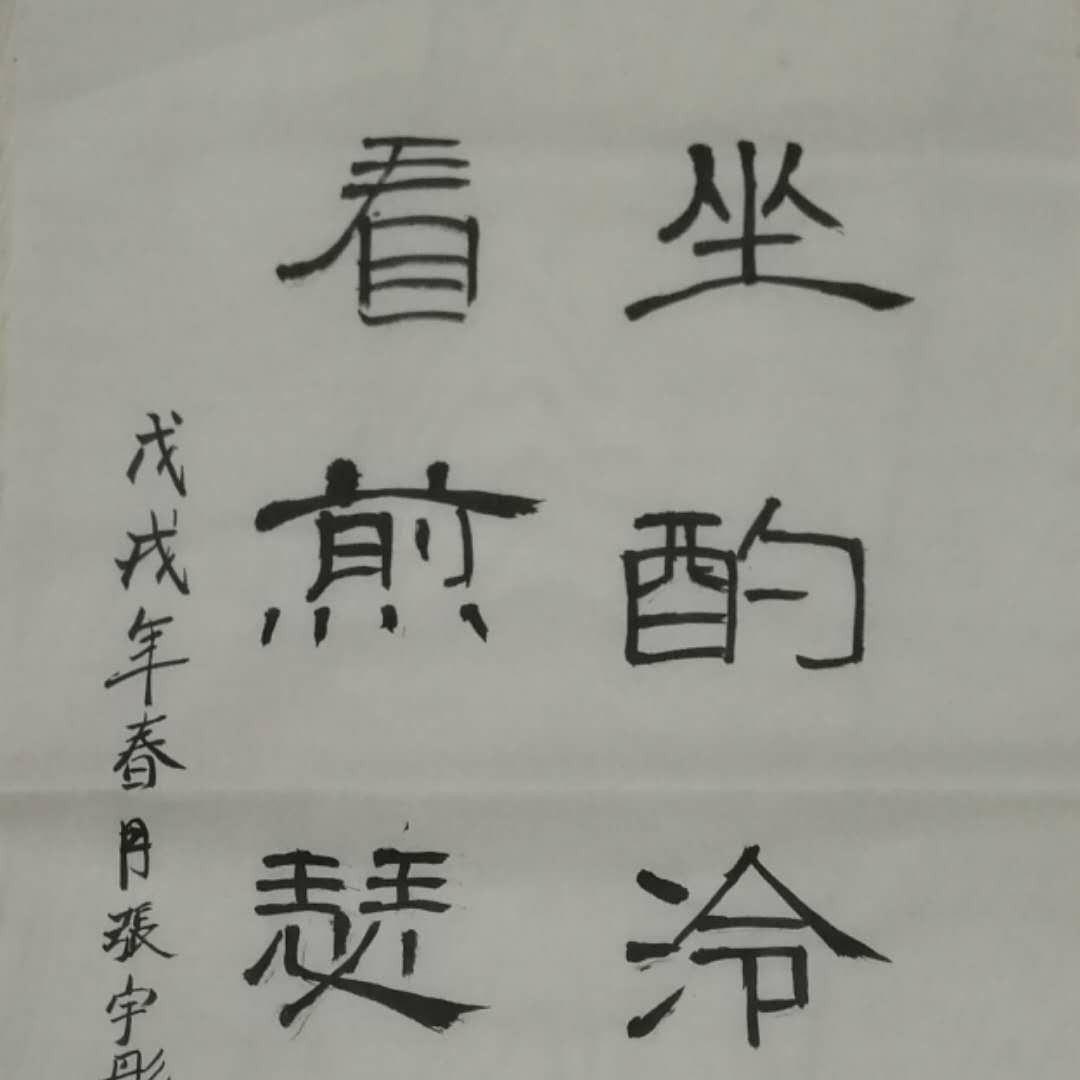 坐酌泠
看煎瑟
戊戌年春月張宇彤